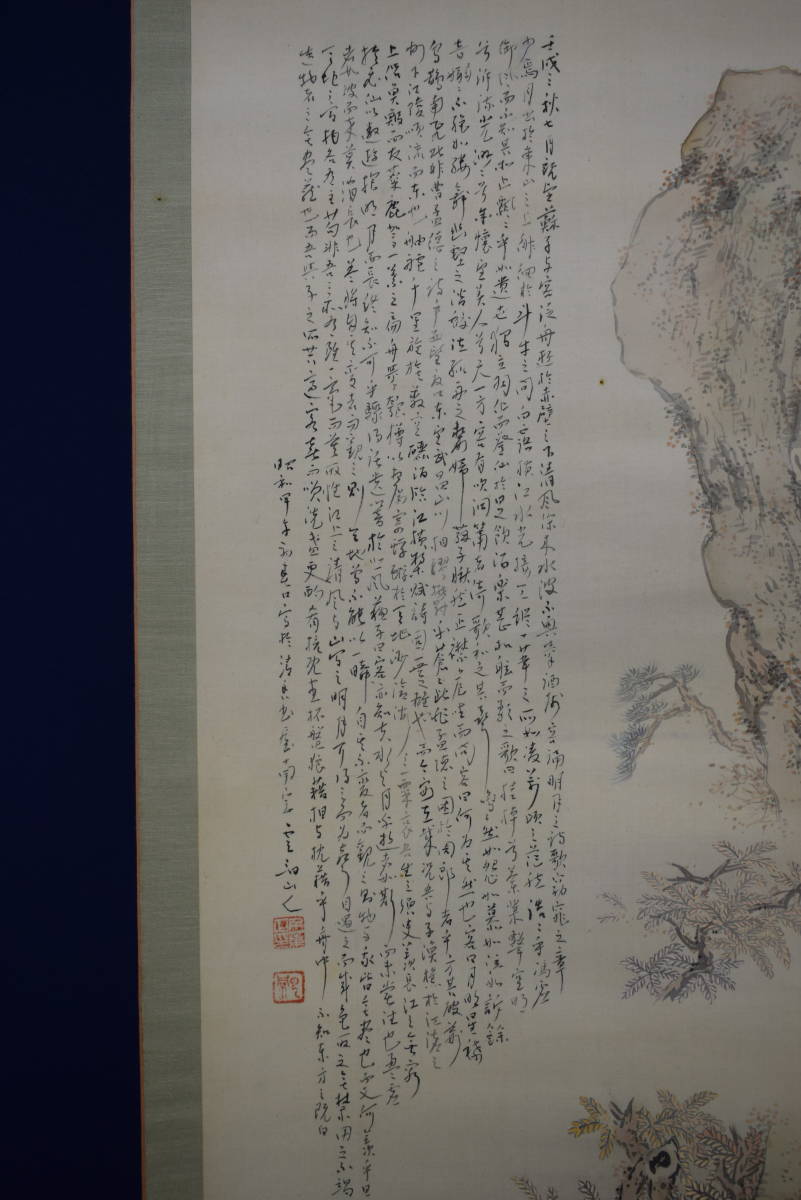 壬戌之秋七月既望蘇子与客泛舟遊於赤壁之下清風徐来水波不興挙酒属客誦明月之詩歌窈窕之章
少焉月出於東山之上徘徊於斗牛之間白露横江水光接天縦一葦之所如凌萬頃之茫然浩々乎馮虚
御風而不知其所止飄々乎如遺世獨立羽化而登仙於是飲酒楽甚扣舷而歌之歌曰桂棹兮蘭槳撃空明
兮泝流光渺々兮余懐望美人兮天一方客有吹洞簫者倚歌和之其聲嗚々然如怨如慕如泣如訴餘
音嫋々不絶如縷舞幽壑之潜蛟泣孤舟之嫠婦蘇子愀然正襟危坐而問客曰何為其然也客曰月明星稀
烏鵲南飛此非曹孟徳之詩乎西望夏口東望武昌山川相繆鬱乎蒼々此非孟徳之困於周郎者乎方其破荊
州下江陵順流而東也舳艫千里旌旗蔽空釃酒臨江横槊賦詩固一世之雄也而今安在哉況吾与子漁樵於江渚之
上侶魚鰕而友麋鹿駕一葉之扁舟挙匏樽以相属寄蜉蝣於天地渺滄海之一粟哀吾生之須臾羨長江之無窮
挟飛仙以遨遊抱明月而長終知不可乎驟得託遺響於悲風蘇子曰客亦知夫水与月乎逝者如斯而未嘗往也盈虚
者如彼而卒莫消長也蓋将自其変者而観之則天地曾不能以一瞬自其不変者而観之則物与我皆無尽也而又何羨乎且
天地之間物各有主苟非吾之所有雖一毫而莫取惟江上之清風与山間之明月耳得之而為聲目遇之而成色取之無禁用之不竭
造物者之無尽蔵也而吾与子之所共適客喜而笑洗盞更酌肴核既尽杯盤狼藉相与枕藉乎舟中不知東方之既白
昭和甲午初夏日写於清香書屋南窓 山人